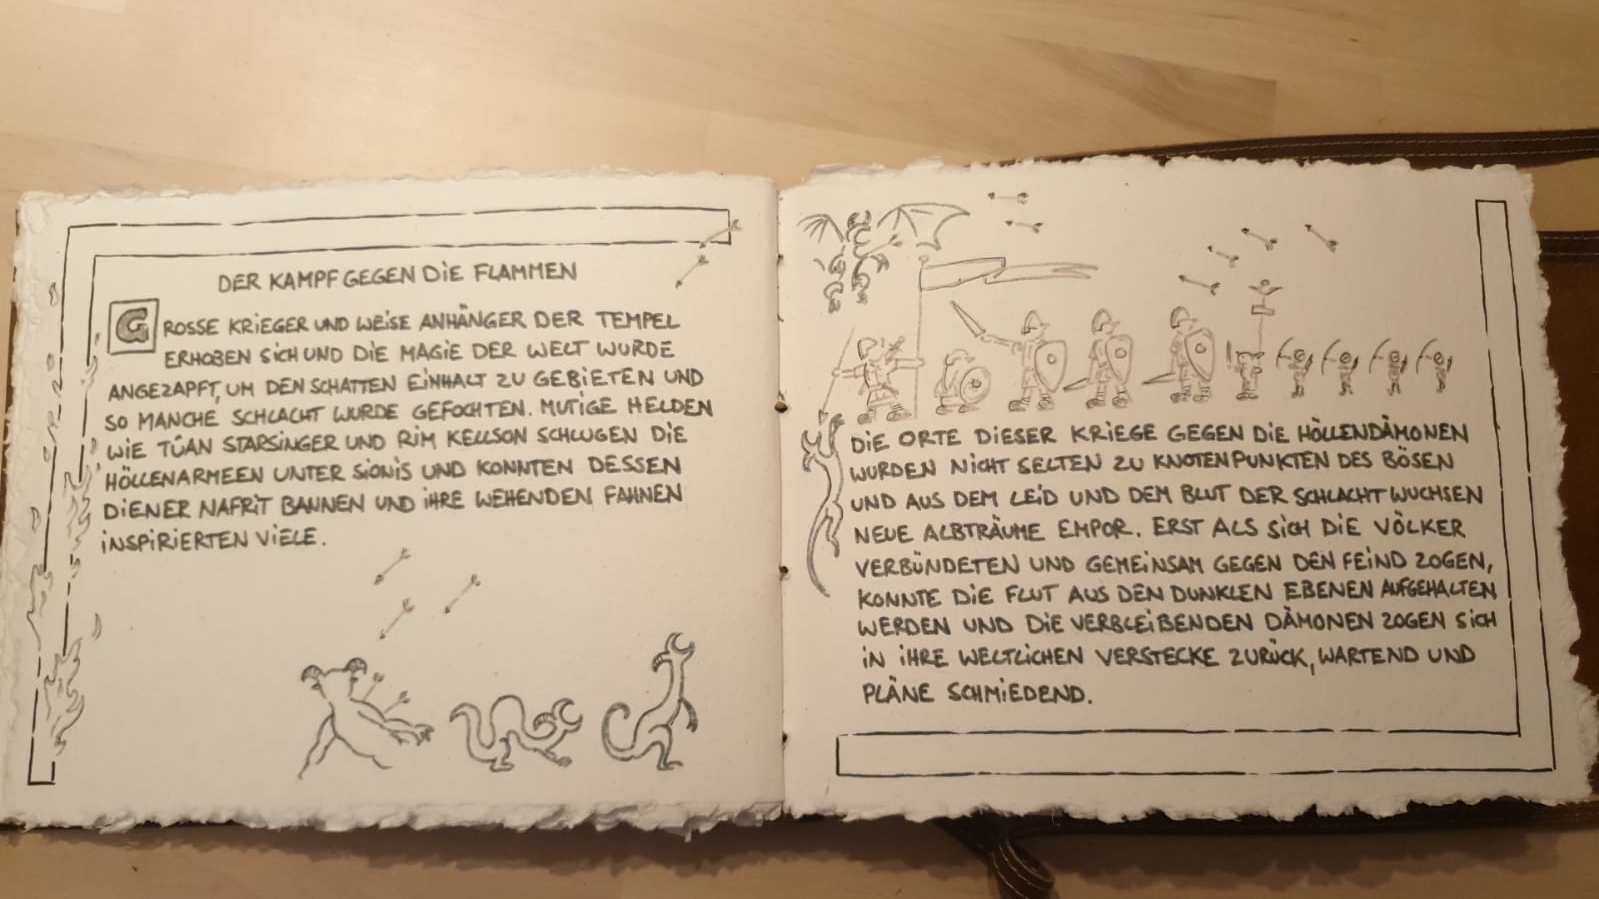 DER KAMPF GEGEN DIE FLAMMEN
GROSSE KRIEGER UND WEISE ANHÄNGER DER TEMPEL
ERHOBEN SICH UND DIE MAGIE DER WELT WURDE
ANGEZAPFT, UM DEN SCHATTEN EINHALT ZU GEBIETEN UND
SO MANCHE SCHLACHT WURDE GEFOCHTEN. MUTIGE HELDEN
WIE TÚAN STARSINGER UND RIM KELLSON SCHLUGEN DIE
HÖLLENARMEEN UNTER SIONIS UND KONNTEN DESSEN
DIENER NAFRIT BANNEN UND IHRE WEHENDEN FAHNEN
INSPIRIERTEN VIELE.
DIE ORTE DIESER KRIEGE GEGEN DIE HÖLLENDÄMONEN
WURDEN NICHT SELTEN ZU KNOTENPUNKTEN DES BÖSEN
UND AUS DEM LEID UND DEM BLUT DER SCHLACHT WUCHSEN
NEUE ALBTRÄUME EMPOR. ERST ALS SICH DIE VÖLKER
VERBÜNDETEN UND GEMEINSAM GEGEN DEN FEIND ZOGEN,
KONNTE DIE FLUT AUS DEN DUNKLEN EBENEN AUFGEHALTEN
WERDEN UND DIE VERBLEIBENDEN DÄMONEN ZOGEN SICH
IN IHRE WELTLICHEN VERSTECKE ZURÜCK, WARTEND UND
PLÄNE SCHMIEDEND.